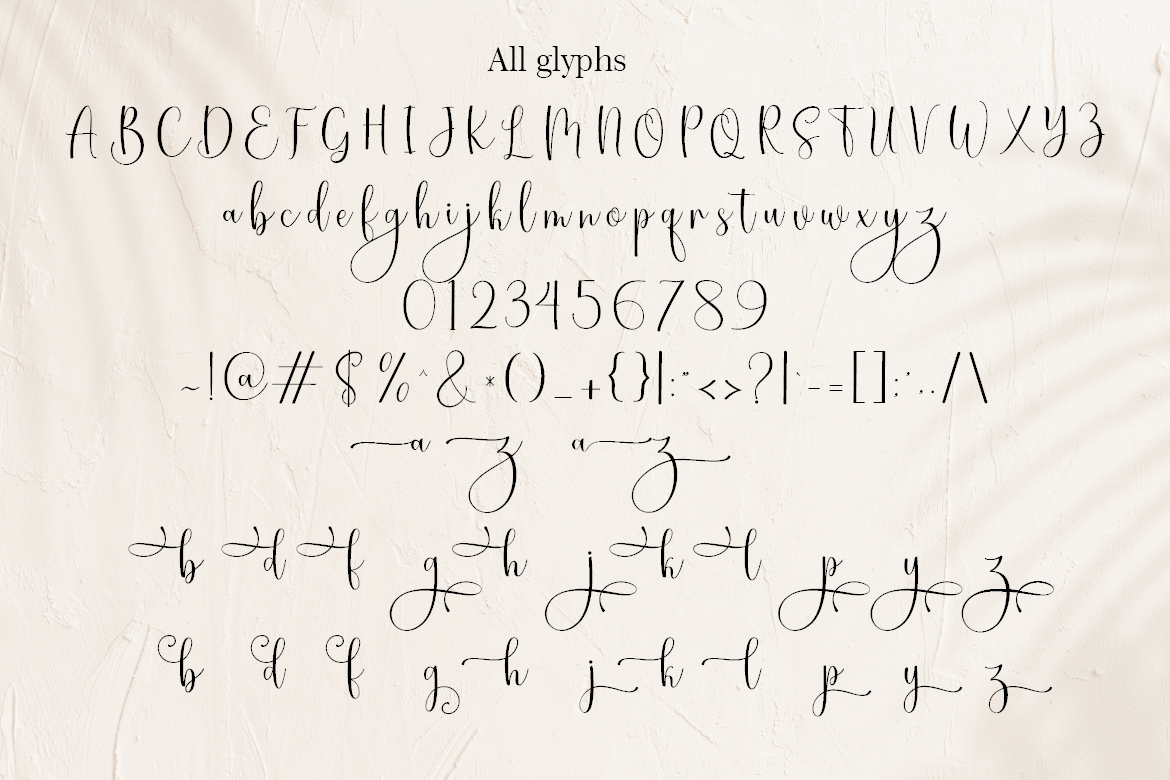 All glyphs
A B C D E F G H I J K L M N O P Q R S T U V W X Y Z
a b c d e f g h i j k l m n o p q r s t u v w x y z
0 1 2 3 4 5 6 7 8 9
~ ! @ # $ % ^ & * ( ) _ + { } | : " < > ? | ` - = [ ] ; ' , . / \
a z a z
b d f g h j k l p y z
b d f g h j k l p y z